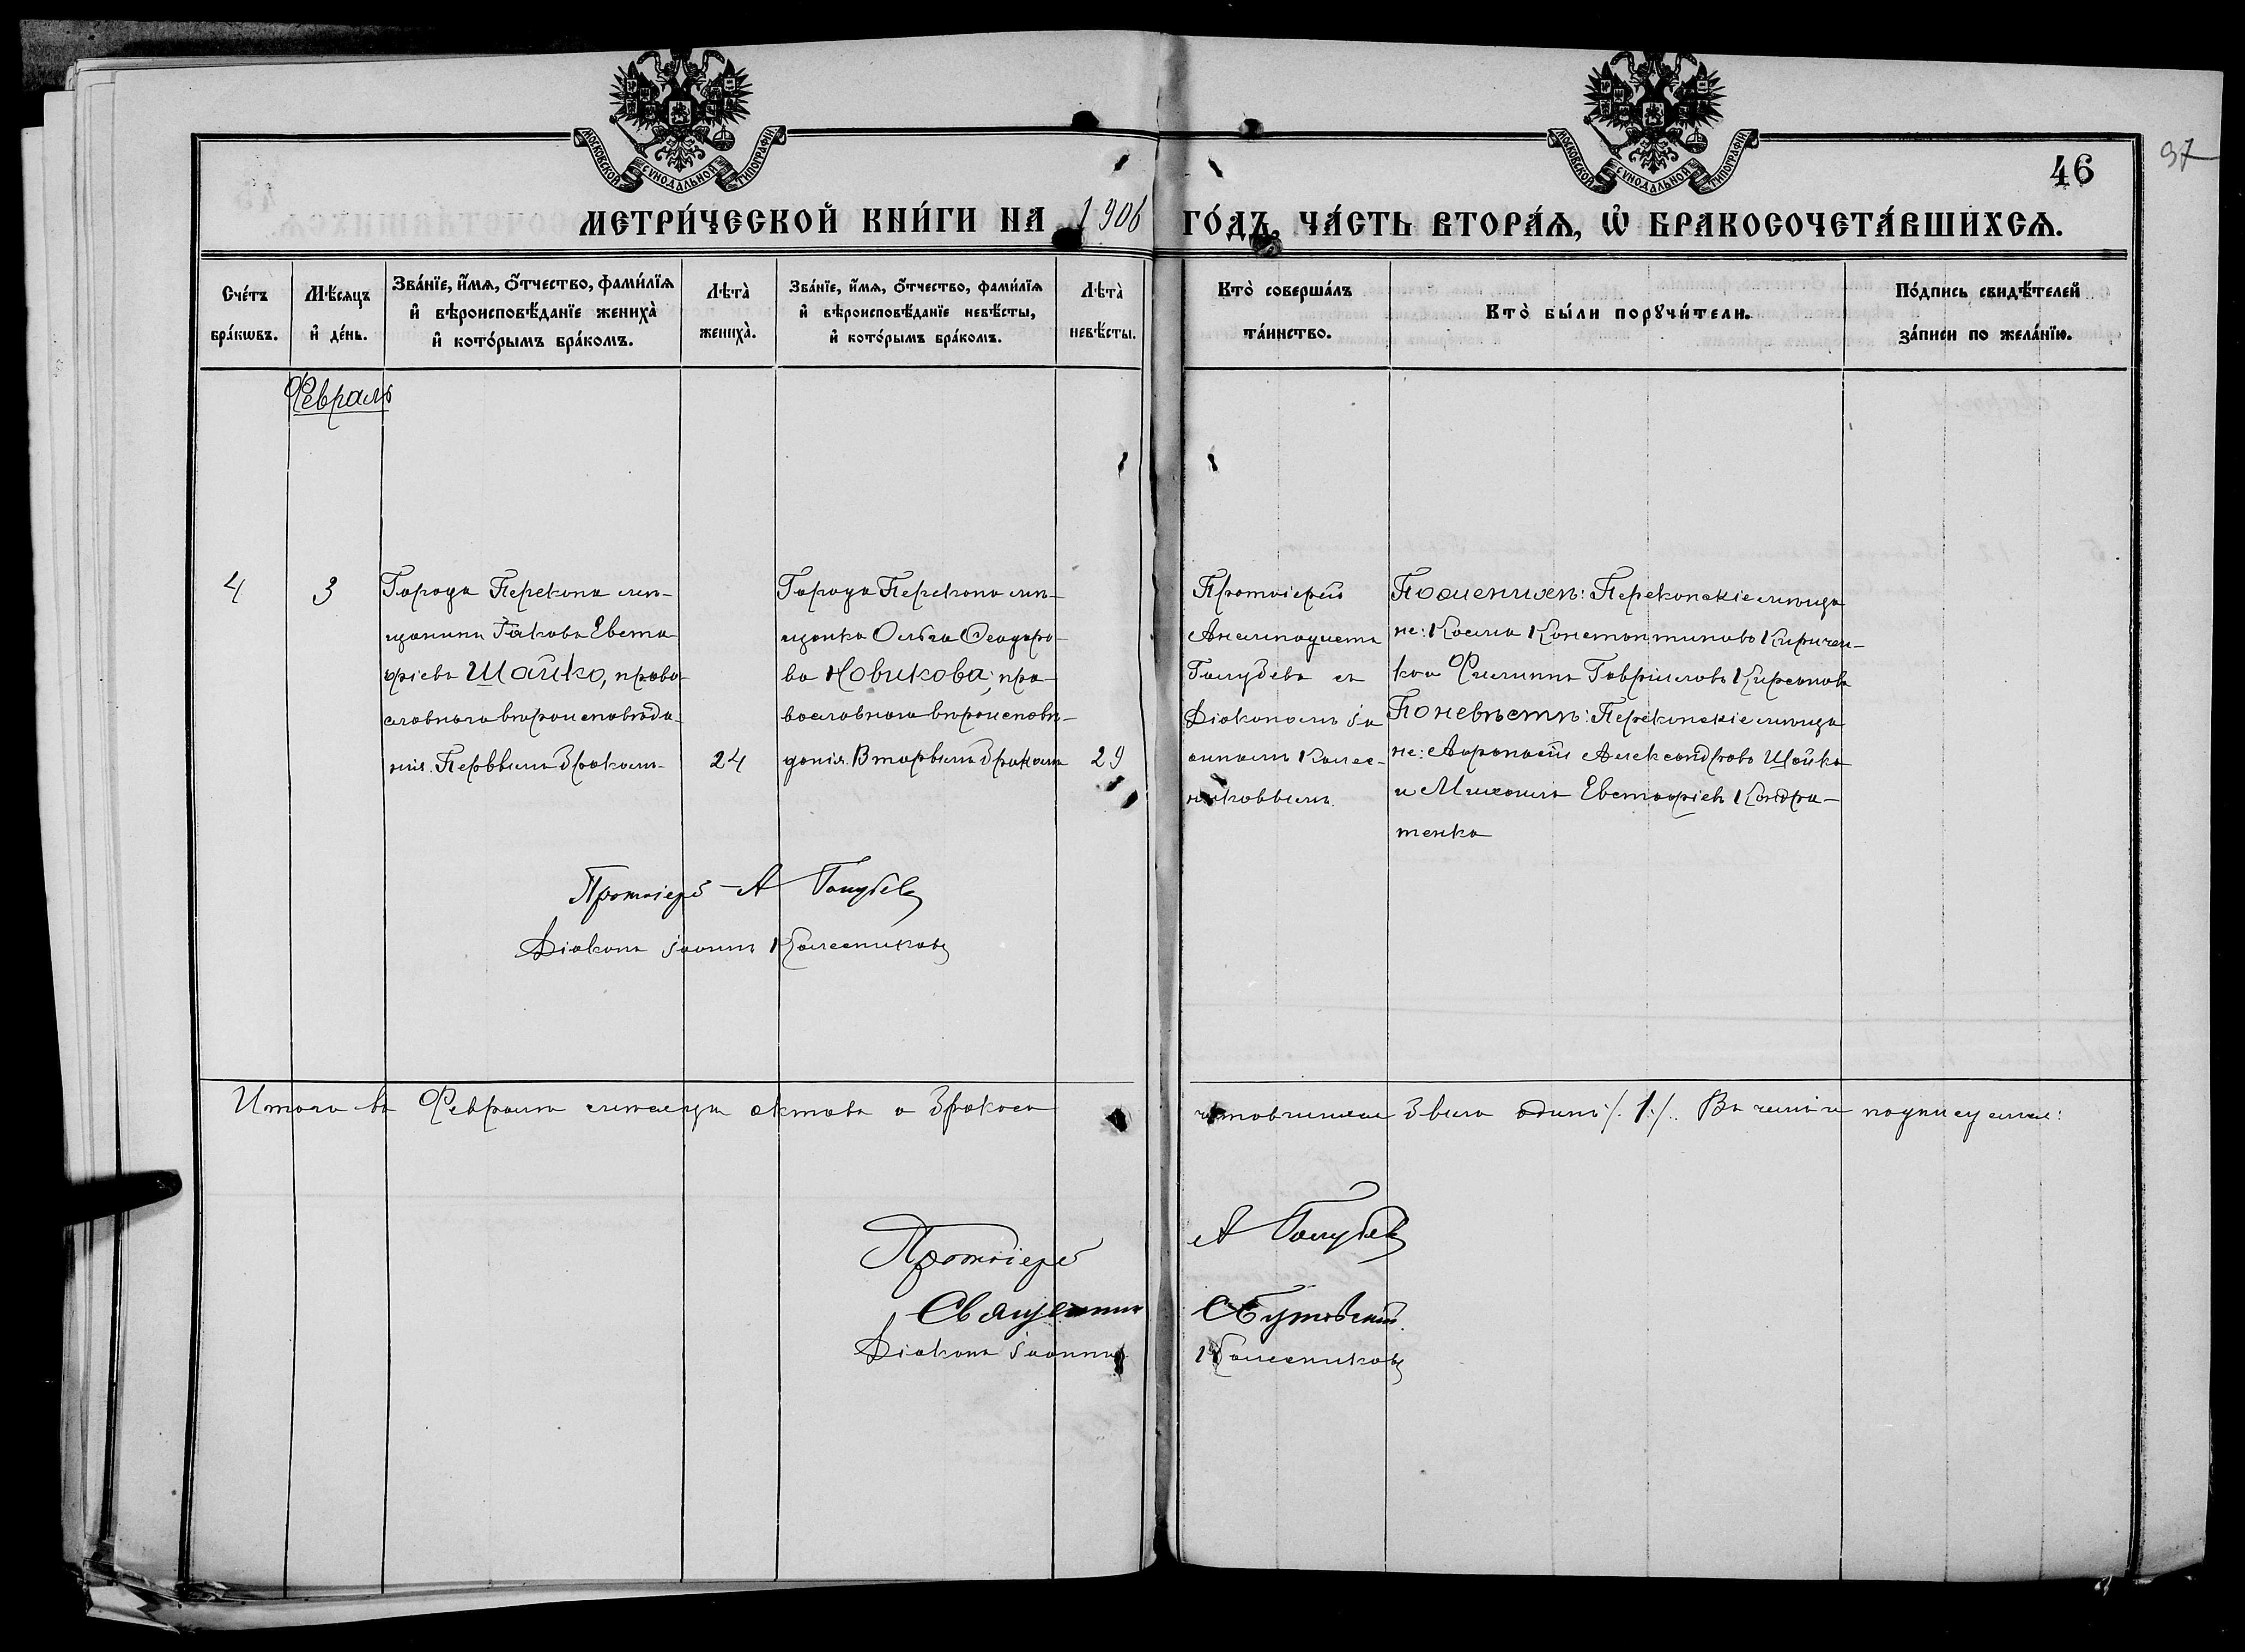 МОСКОВСКОЙ СѴНОДАЛЬНОЙ ТИПОГРАФІИ
МОСКОВСКОЙ СѴНОДАЛЬНОЙ ТИПОГРАФІИ
46
97
МЕТРИ́ЧЕСКОЙ КНИ́ГИ НА 1906 ГО́ДЪ, ЧА́СТЬ ВТОРА́Ѧ, Ѡ҆ БРАКОСОЧЕТА́ВШИХСѦ.
Сче́тъ бра́кѡвъ.
Мѣ́сяцъ и҆ де́нь.
Зва́нїе, и҆́мѧ, ѻ҆́тчество, фами́лїѧ
и҆ вѣроисповѣ́данїе жениха̀
и҆ кото́рымъ бра́комъ.
Лѣта̀ жениха̀.
Зва́нїе, и҆́мѧ, ѻ҆́тчество, фами́лїѧ
и҆ вѣроисповѣ́данїе невѣ́сты,
и҆ кото́рымъ бра́комъ.
Лѣта̀ невѣ́сты.
Кто̀ соверша́лъ
та́инство.
Кто̀ бы́ли порꙋчи́тели.
По́дпись свидѣ́телей
за́писи по жела́нїю.
Февраль
4
3
Города Перекопа мѣ-
щанинъ Іаковъ Евста-
фіевъ Шайко, право-
славнаго вѣроисповѣда-
нія. Первымъ бракомъ
24
Города Перекопа мѣ-
щанка Ольга Ѳеодоро-
ва Новикова, пра-
вославнаго вѣроисповѣ-
данія. Вторымъ бракомъ
29
Протоіерей
Анемподистъ
Голубевъ съ
Діакономъ Іо
анномъ Колес-
никовымъ.
По женихѣ: Перекопскіе мѣща
не: Косма Константиновъ Киричен-
ко и Филиппъ Гавріиловъ Кирсановъ
По невѣстѣ: Перекопскіе мѣща
не: Аѳанасій Александровъ Шайко
и Михаилъ Евстафіевъ Кондра-
тенко
Протоіерей А Голубевъ
Діаконъ Іоаннъ Колесниковъ
Итого въ Февралѣ мѣсяцѣ актовъ о бракосо
четавшихся было одинъ /1/. Въ чемъ и подписуемся:
Протоіерей А Голубевъ
Священникъ
Діаконъ Іоаннъ Колесниковъ